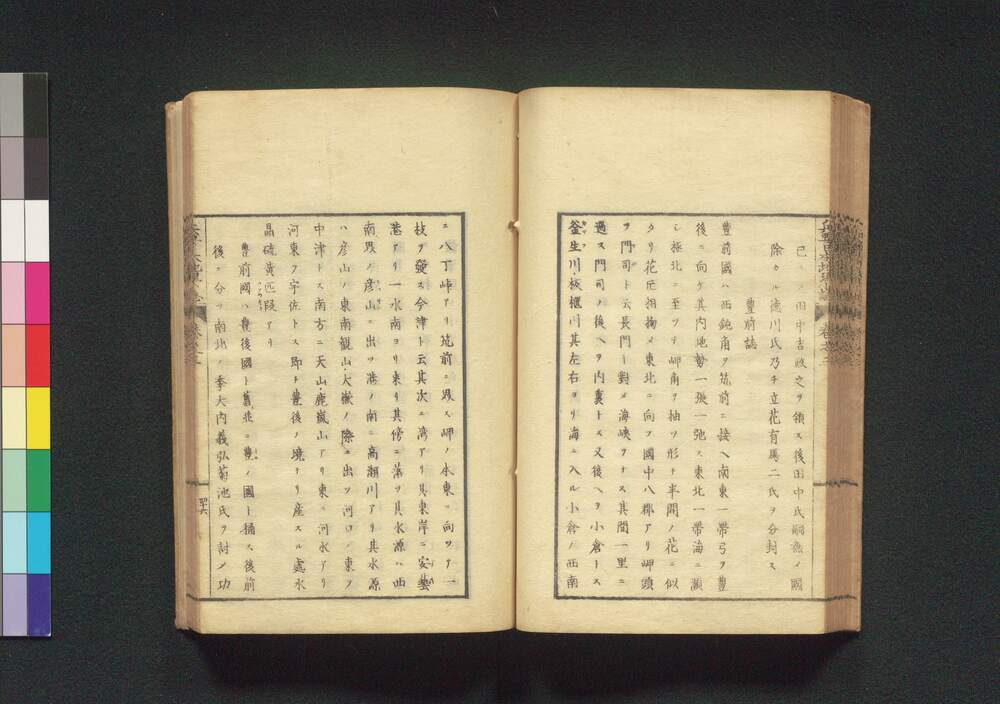 已ニ田中吉政之ヲ領ス後田中氏嗣無ノ國
除カル徳川氏乃チ立花有馬二氏ヲ分封ス
豊前誌
豊前國ハ西鈍角ヲ筑前ニ接ヘ南東一帯弓ヲ豊
後ニ向ケ其内地勢一張一弛ス東北一帯海ニ瀕
シ極北ニ至ツテ岬角ヲ抽ツ形チ半開ノ花ニ似
タリ花圧相掬メ東北ニ向フ國中八郡アリ岬頭
ヲ門司ト云長門ト對メ海峡ヲナス其間一里ニ
過ス門司ノ後ヘヲ内裏トス又後ヘヲ小倉トス
釜生川・板櫃川其左右ヨリ海ニ入ル小倉ノ西南
ニ八丁峠アリ筑前ニ跨ス岬ノ本東ニ向ツテ一
枝ヲ發ス今津ト云其次ニ湾アリ其東岸ニ安藝
港アリ一水南ヨリ東リ其傍ニ落ツ其水源ハ西
南跨ケ彦山ニ出ツ港ノ南ニ高瀬川アリ其水源
ハ彦山ノ東南観山・大嶽ノ際ニ出ツ河口ノ東ヲ
中津トス南方ニ天山・鹿嵐山アリ東ニ河水アリ
河東ヲ宇佐トス即ト豊後ノ境ナリ産スル處水
晶硫黄匹段アリ
豊前國ハ豊後國ト舊北ニ豊ノ國ト稱ス後前
後ニ分ツ南北ノ季大内義弘菊池氏ヲ討メ功
四十六